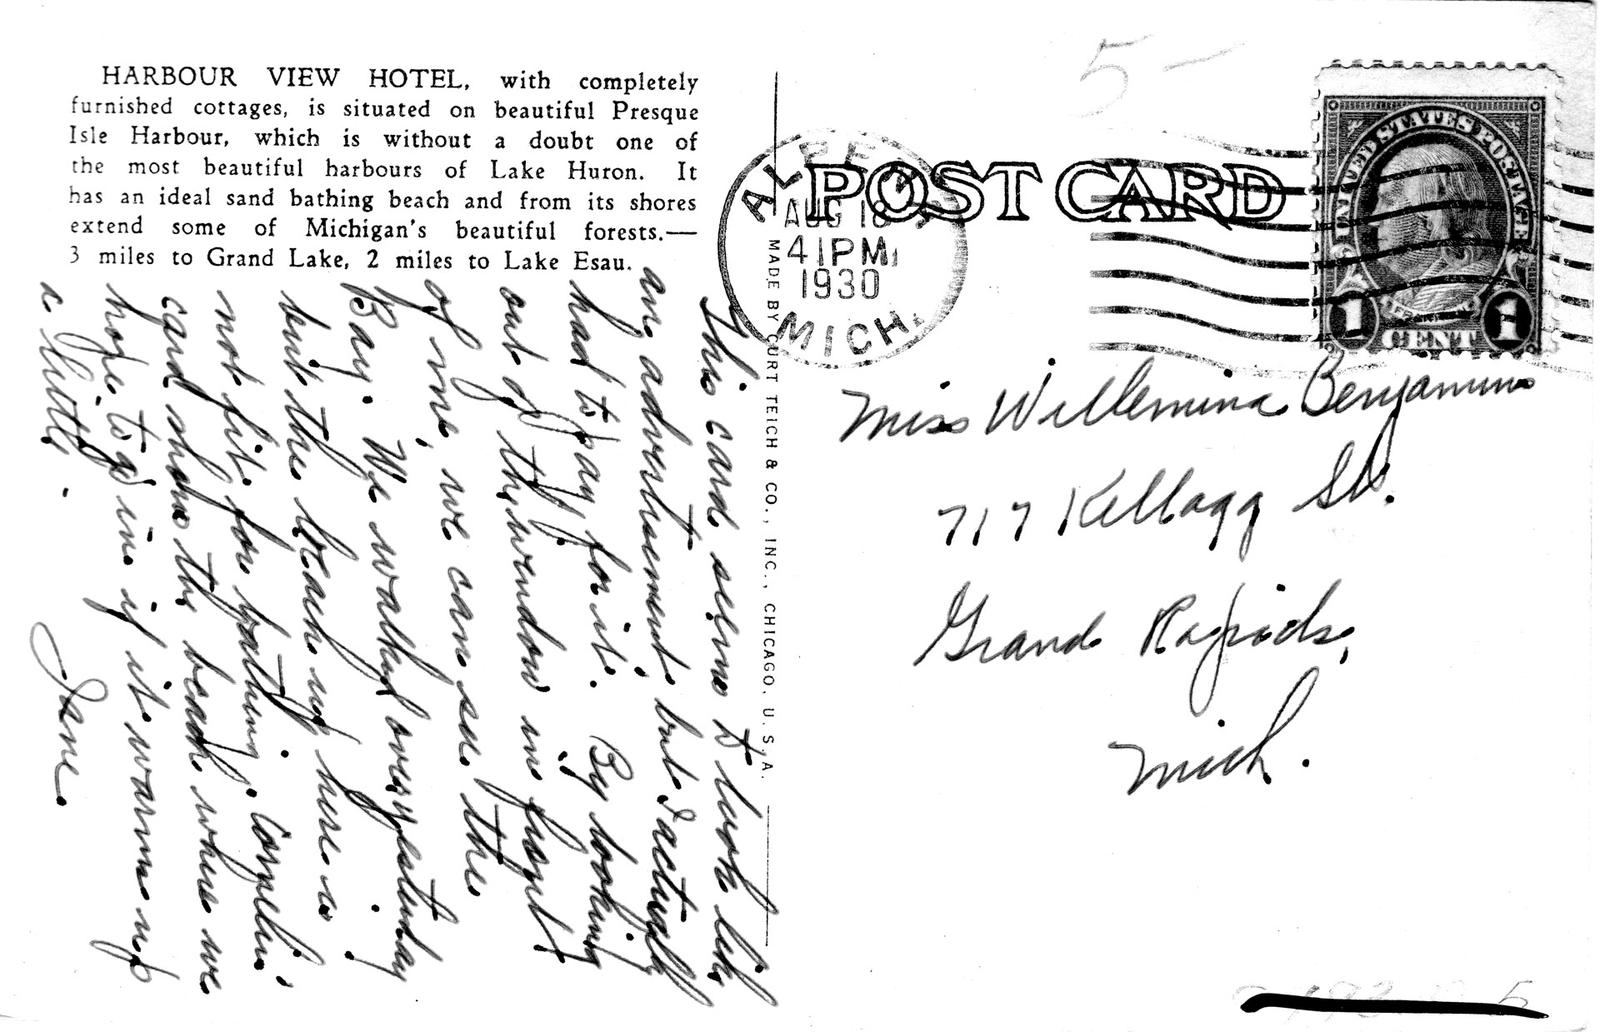 HARBOUR VIEW HOTEL, with completely
furnished cottages, is situated on beautiful Presque
Isle Harbour, which is without a doubt one of
the most beautiful harbours of Lake Huron. It
has an ideal sand bathing beach and from its shores
extend some of Michigan's beautiful forests.—
3 miles to Grand Lake, 2 miles to Lake Esau.
This card seems to look like
an advertisement, but I actually
had to pay for it. By looking
out of the window in front
of me, we can see the
Bay. We walked over yesterday
but the beach up here is
not fit for bathing.
card shows the beach where we
hope to go in if it warms up
a little.
Jane.
MADE BY CURT TEICH & CO., INC., CHICAGO, U. S. A.
POST CARD
ALPENA
AUG 18
41PM
1930
MICH.
5-
UNITED STATES POSTAGE
FRANKLIN
1 CENT 1
Miss Willemina Benjamins
717 Kellogg St.
Grand Rapids,
Mich.